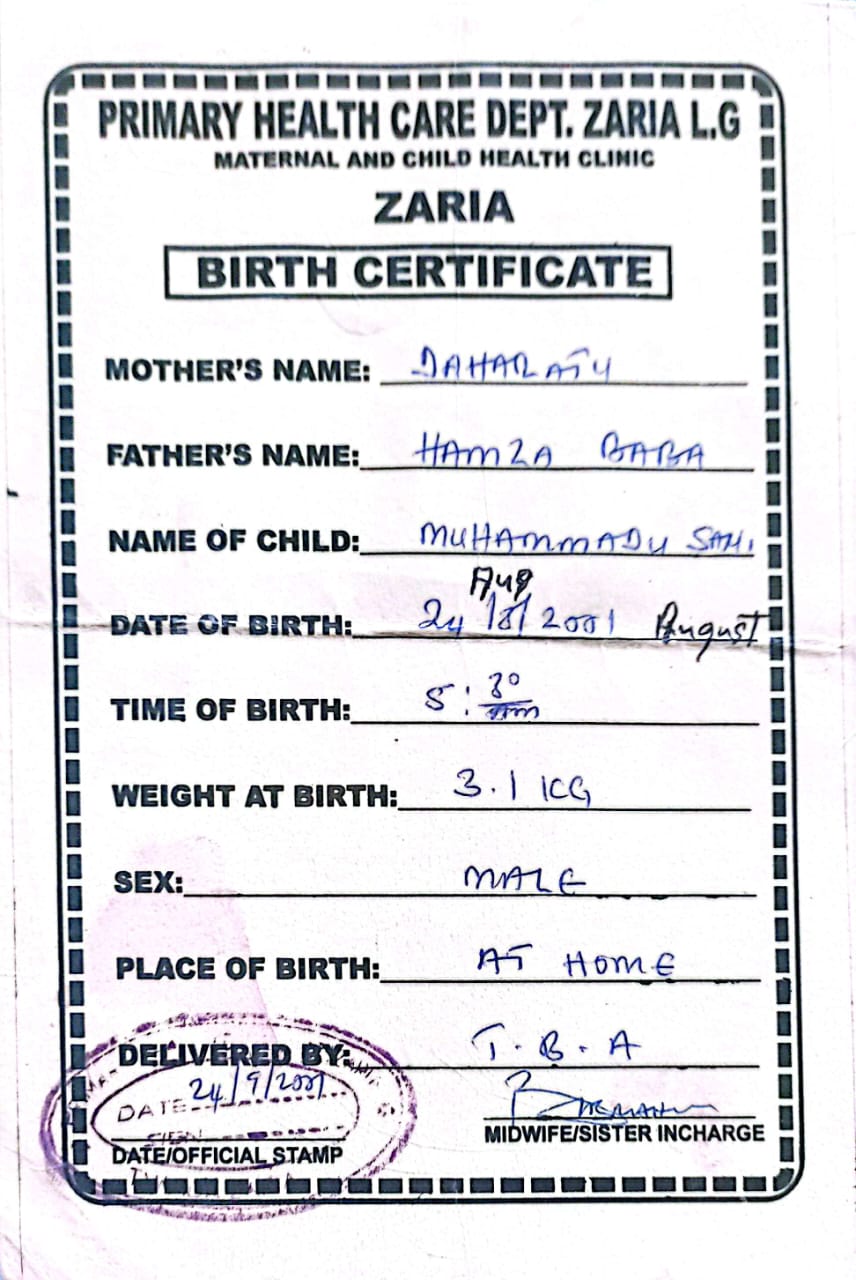 PRIMARY HEALTH CARE DEPT. ZARIA L.G
MATERNAL AND CHILD HEALTH CLINIC
ZARIA
BIRTH CERTIFICATE
MOTHER'S NAME: DAHARATU
FATHER'S NAME: HAMZA BABA
NAME OF CHILD: MUHAMMADU SANI
Aug
DATE OF BIRTH: 24/8/2001 August
TIME OF BIRTH: 5:30
WEIGHT AT BIRTH: 3.1 KG
SEX: MALE
PLACE OF BIRTH: AT HOME
DELIVERED BY: T.B.A
DATE 24/9/2001
SIGN
MIDWIFE/SISTER INCHARGE
DATE/OFFICIAL STAMP